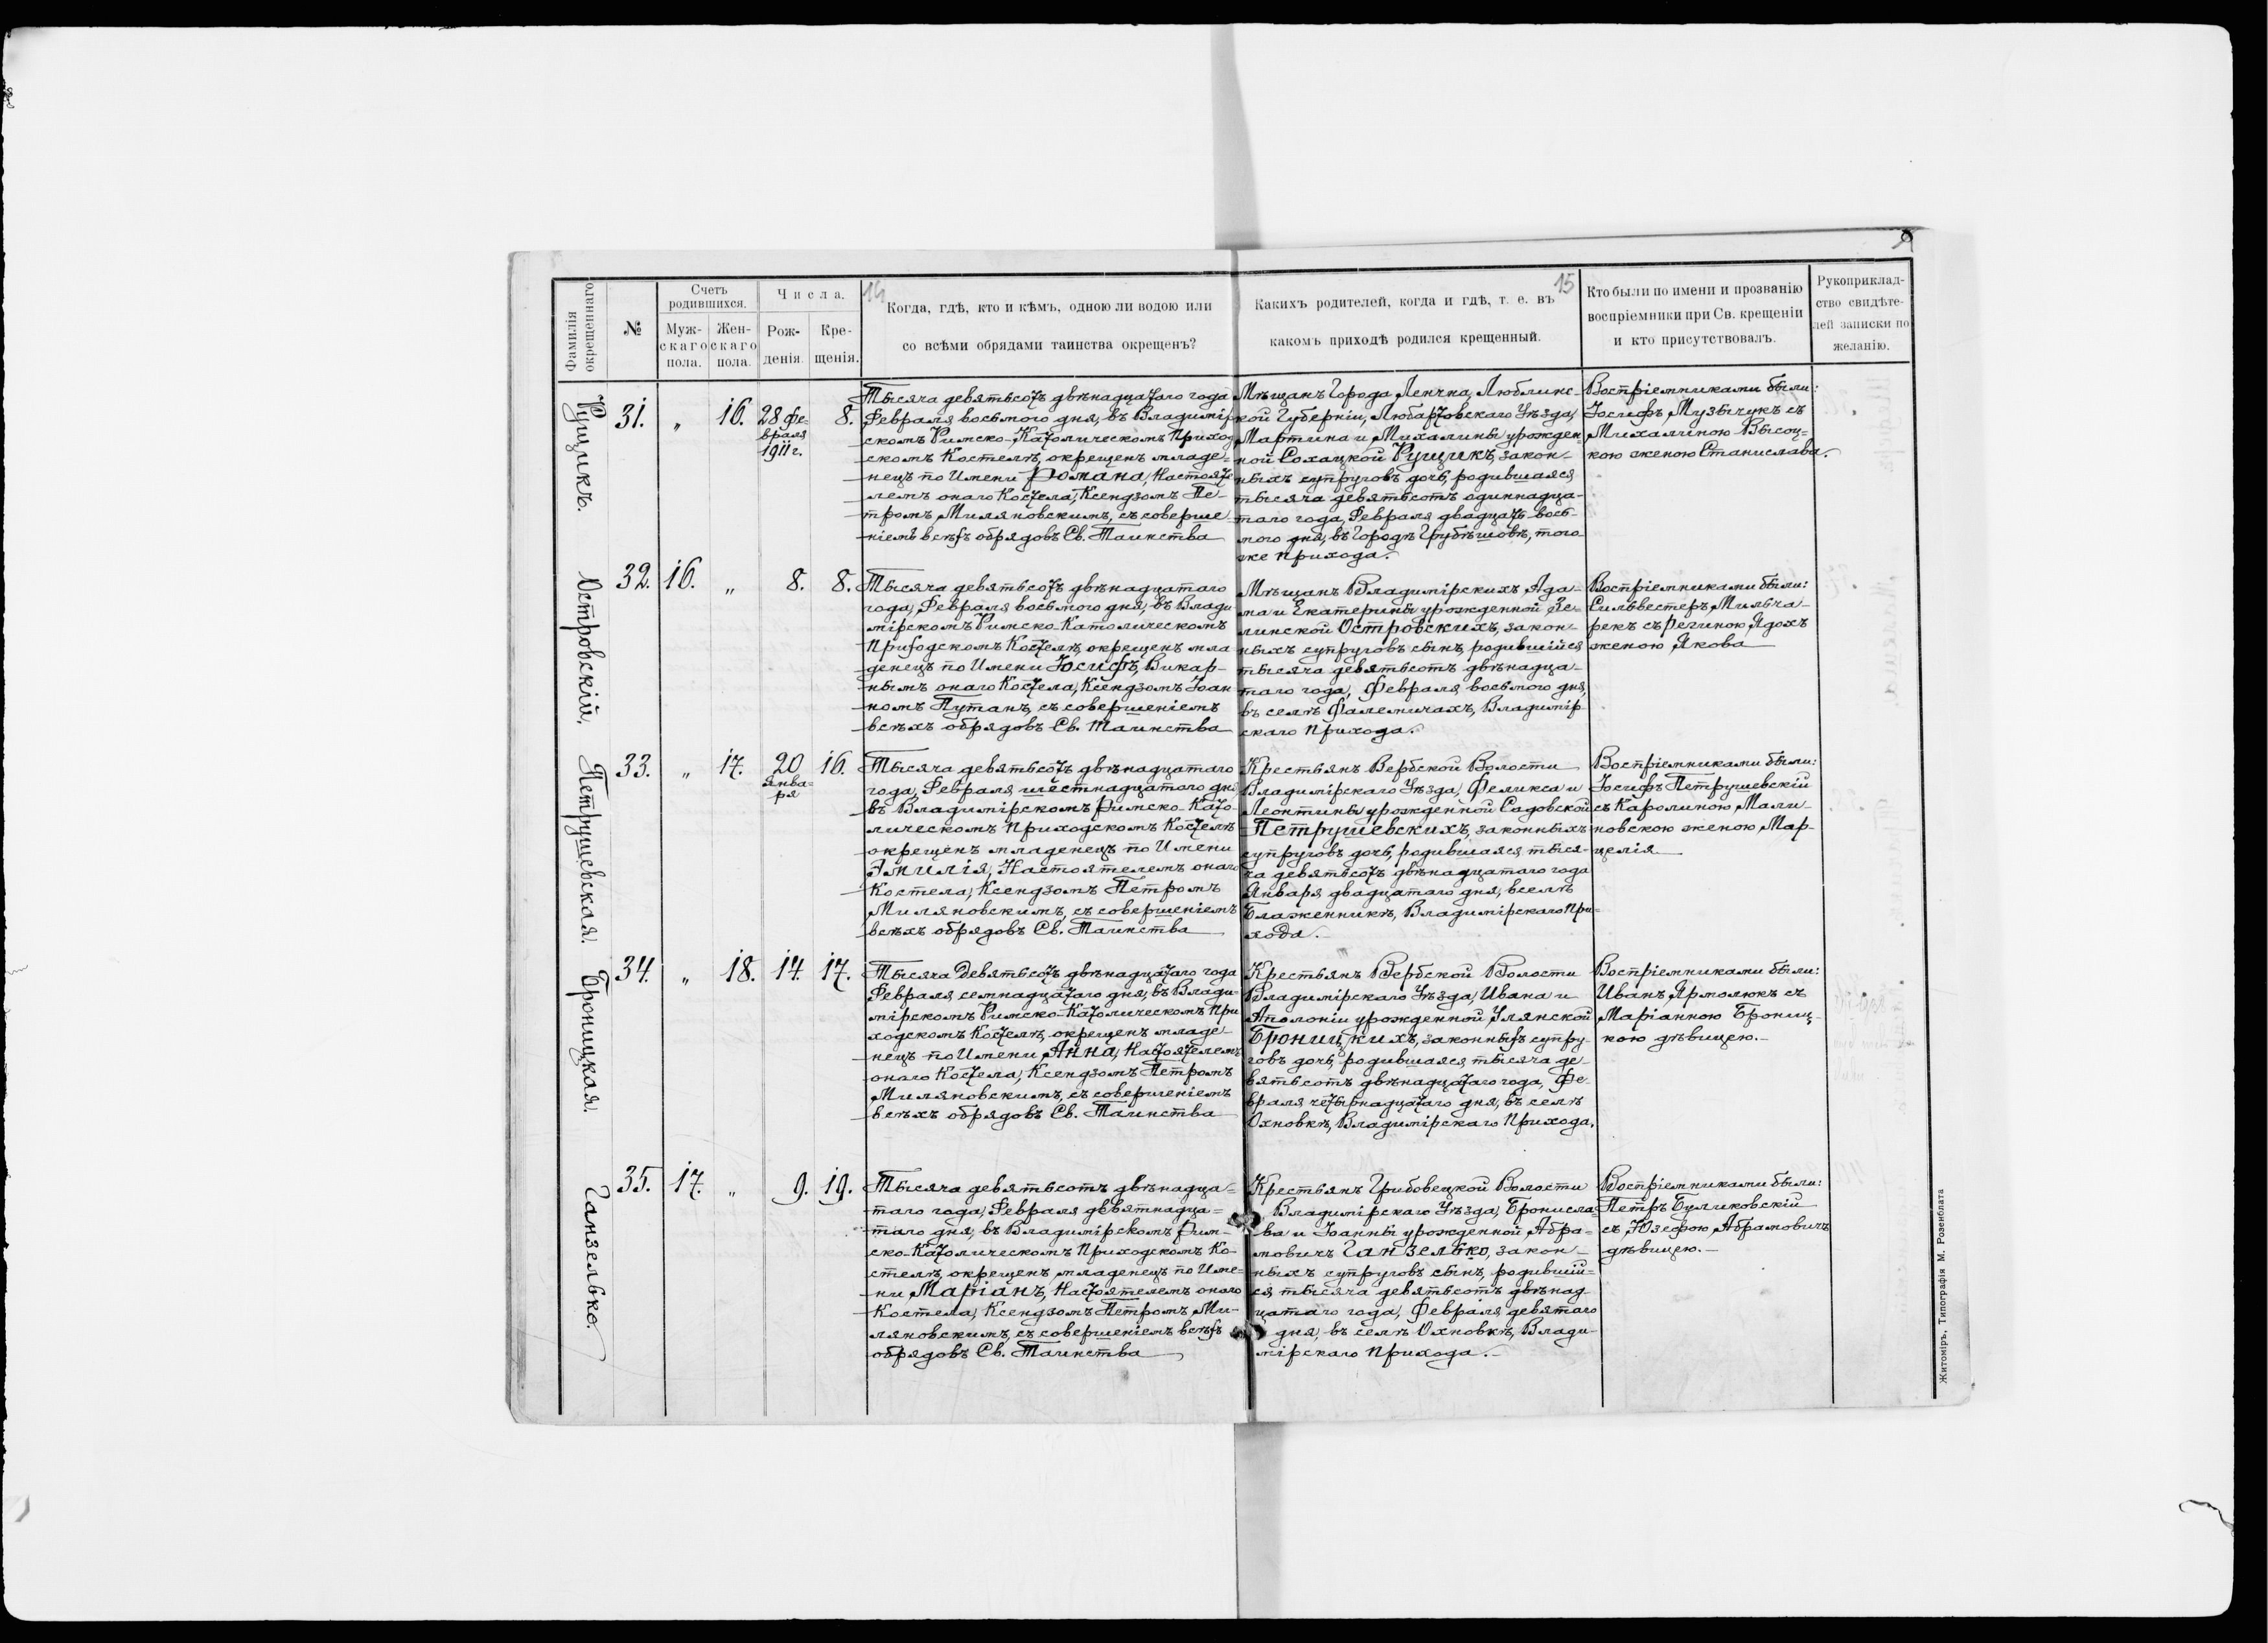 14
15
Фамилія окрещеннаго
№
Счетъ родившихся.
Муж-скаго пола.
Жен-скаго пола.
Числа.
Рож-денія.
Кре-щенія.
Когда, гдѣ, кто и кѣмъ, одною ли водою или
со всѣми обрядами таинства окрещенъ?
Какихъ родителей, когда и гдѣ, т. е. въ
какомъ приходѣ родился крещенный.
Кто были по имени и прозванію
воспріемники при Св. крещеніи
и кто присутствовалъ.
Рукоприклад-
ство свидѣте-
лей записки по
желанію.
Рущикъ.
31.
„
16.
28 фе-
враля
1911 г.
8.
Тысяча девятьсотъ двѣнадцатаго года
Февраля восьмого дня, въ Владимір
скомъ Римско-Католическомъ Приход
скомъ Костелѣ, окрещенъ младе-
нецъ по Имени Романа, Настояте
лемъ онаго Костела, Ксендзомъ Пе-
тромъ Миляновскимъ, съ соверше
ніемъ всѣхъ обрядовъ Св. Таинства
Мѣщанъ Города Ленчна, Люблинс-
кой Губерніи, Любартовскаго Уѣзда,
Мартина и Михалины урожден-
ной Сохацкой Рущикъ, закон-
ныхъ супруговъ дочь, родившаяся
тысяча девятьсотъ одиннадца-
таго года, Февраля двадцать вось-
мого дня, въ Городѣ Грубѣшовѣ, того
же Прихода.
Воспріемниками были:
Іосифъ Музычукъ съ
Михалиною Высоц-
кою женою Станислава.
Островскій.
32.
16.
„
8.
8.
Тысяча девятьсотъ двѣнадцатаго
года, Февраля восьмого дня, въ Влади
мірскомъ Римско-Католическомъ
Приходскомъ Костелѣ, окрещенъ мла
денецъ по Имени Іосифъ, Викар-
нымъ онаго Костела, Ксендзомъ Іоан
номъ Путанъ, съ совершеніемъ
всѣхъ обрядовъ Св. Таинства
Мѣщанъ Владимірскихъ, Ада-
ма и Екатерины урожденной Зе-
линской Островскихъ, закон-
ныхъ супруговъ сынъ, родившійся
тысяча девятьсотъ двѣнадца-
таго года, Февраля восьмого дня,
въ селѣ Фалемичахъ, Владимір
скаго Прихода.
Воспріемниками были:
Сильвестеръ Мильча-
рекъ съ Региною Ядохъ
женою Якова
Петрушевская.
33.
„
17.
20
Янва-
ря
16.
Тысяча девятьсотъ двѣнадцатаго
года, Февраля шестнадцатаго дня
въ Владимірскомъ Римско-Като-
лическомъ Приходскомъ Костелѣ
окрещенъ младенецъ по Имени
Эмилія, Настоятелемъ онаго
Костела, Ксендзомъ Петромъ
Миляновскимъ, съ совершеніемъ
всѣхъ обрядовъ Св. Таинства
Крестьянъ Вербской Волости
Владимірскаго Уѣзда, Феликса и
Леонтины урожденной Садовской
Петрушевскихъ, законныхъ
супруговъ дочь, родившаяся тыся-
ча девятьсотъ двѣнадцатаго года
Января двадцатаго дня, вселѣ
Блаженникѣ, Владимірскаго При-
хода.
Воспріемниками были:
Іосифъ Петрушевскій
съ Каролиною Мали-
новскою женою Мар-
целія
Броницкая.
34.
„
18.
14.
17.
Тысяча Девятьсотъ двѣнадцатаго года
Февраля семнадцатаго дня, въ Влади-
мірскомъ Римско-Католическомъ При
ходскомъ Костелѣ, окрещенъ младе-
нецъ по Имени Анна, Настоятелемъ
онаго Костела, Ксендзомъ Петромъ
Миляновскимъ, съ совершеніемъ
всѣхъ обрядовъ Св. Таинства
Крестьянъ Вербской Волости
Владимірскаго Уѣзда, Ивана и
Аполоніи урожденной Улянской
Броницкихъ, законныхъ супру-
говъ дочь, родившаяся тысяча де-
вятьсотъ двѣнадцатаго года, Фе-
враля четырнадцатаго дня, въ селѣ
Охновкѣ, Владимірскаго Прихода.
Воспріемниками были:
Иванъ Ярмолюкъ съ
Маріанною Брониц-
кою дѣвицею.
Ганзелько.
35.
17.
„
9.
19.
Тысяча девятьсотъ двѣнадца-
таго года, Февраля девятнадца-
таго дня, въ Владимірскомъ Рим-
ско-Католическомъ Приходскомъ Ко-
стелѣ, окрещенъ младенецъ по Име-
ни Маріанъ, Настоятелемъ онаго
Костела, Ксендзомъ Петромъ Ми-
ляновскимъ, съ совершеніемъ всѣхъ
обрядовъ Св. Таинства
Крестьянъ Грибовецкой Волости
Владимірскаго Уѣзда, Бронисла-
ва и Іоанны урожденной Абра-
мовичъ Ганзелько, закон-
ныхъ супруговъ сынъ, родившій-
ся тысяча девятьсотъ двѣнад
цатаго года, Февраля девятаго
дня, въ селѣ Охновкѣ, Влади-
мірскаго Прихода.
Воспріемниками были:
Петръ Буликовскій
съ Юзефою Абрамовичъ
дѣвицею.
Житоміръ, Типографія М. Розенблата